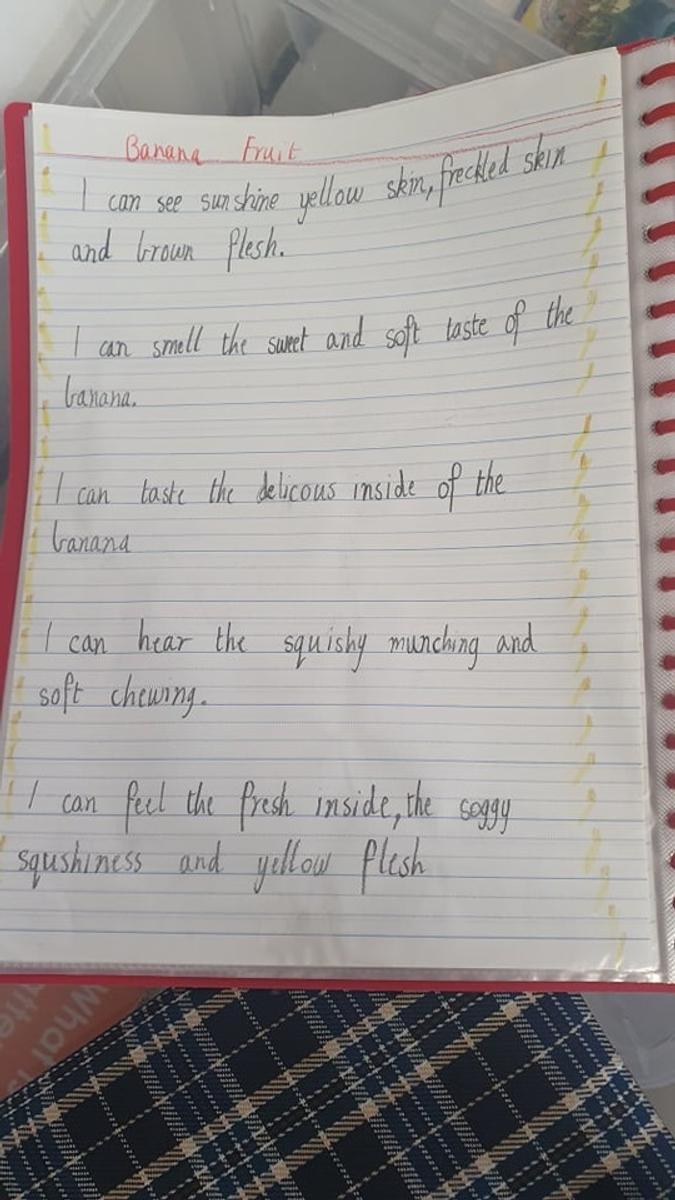 Banana Fruit
I can see sunshine yellow skin, freckled skin
and brown flesh.
I can smell the sweet and soft taste of the
banana.
I can taste the delicous inside of the
banana
I can hear the squishy munching and
soft chewing.
I can feel the fresh inside, the soggy
squshiness and yellow flesh
What